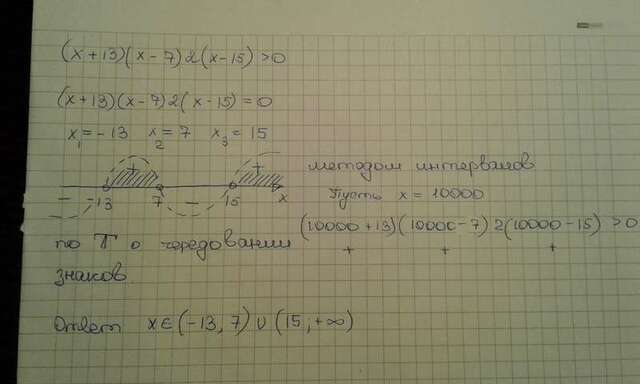 (x+13)(x-7)2(x-15)>0
(x+13)(x-7)2(x-15)=0
x₁=-13 x₂=7 x₃=15
+ +
методом интервалов
- -13 7 - 15 x
Пусть x = 10000
(10000+13)(10000-7)2(10000-15)>0
+ + +
по Т о чередовании
знаков.
Ответ x∈(-13,7)∪(15,+∞)